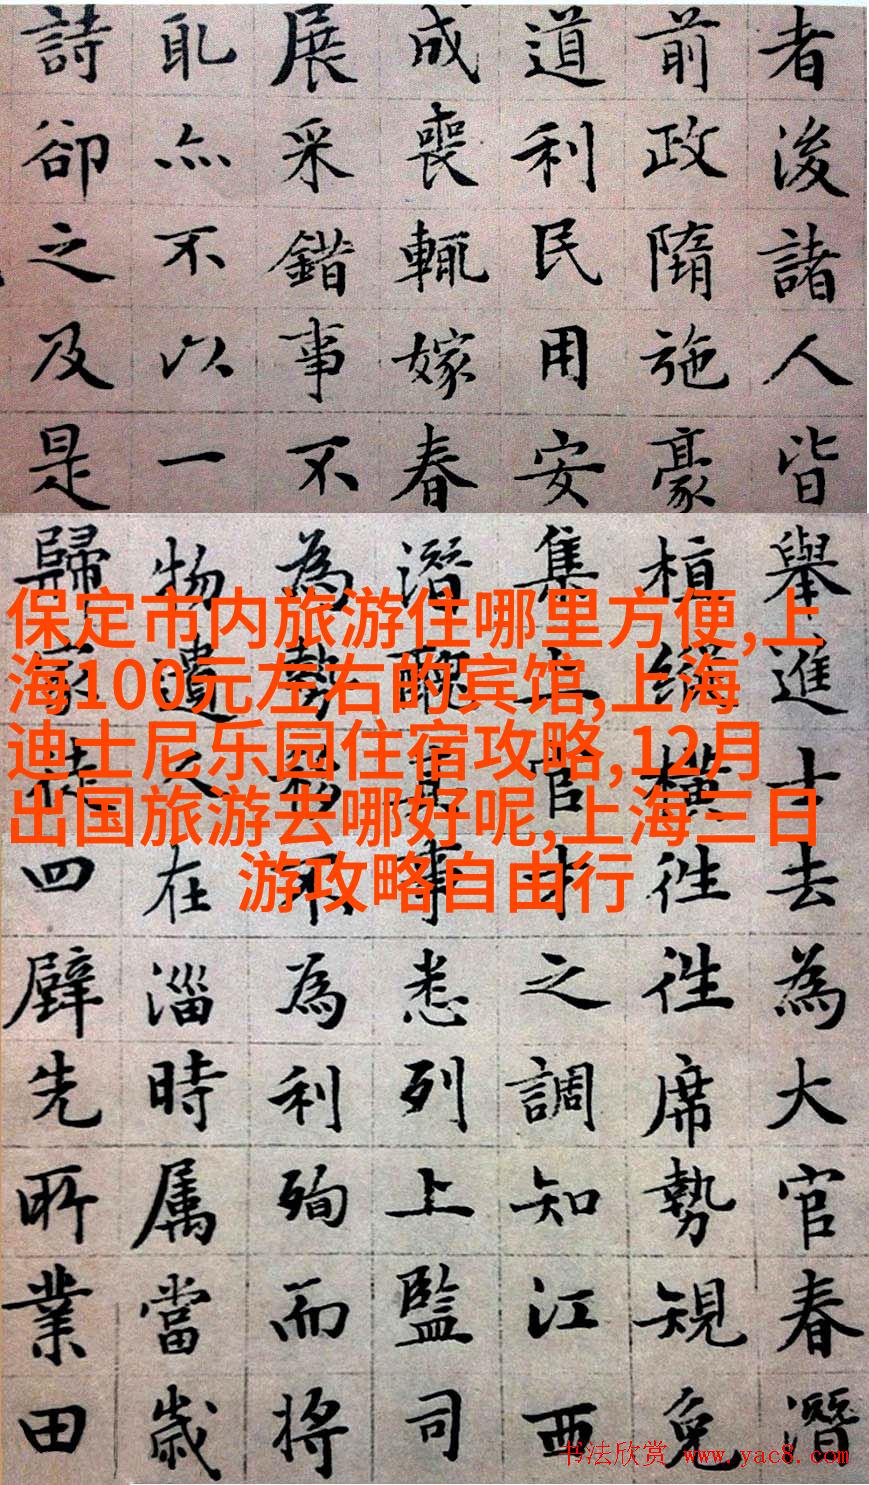 者浚諸人皆舉進士去為大官春潛
前政隋施豪植縱橫往往席勢規免
道利民用安集上官才之調知江西
成喪輒嫁春潛事悉列上監司
展采錯事不為勢易不為利殉而將
耴亦不以一物遺之在淄時属當歲
詩卻之及是歸家徒四壁先所業田
保定市内旅游住哪里方便,上
海100元左右的宾馆,上海
迪士尼乐园住宿攻略,12月
出国旅游去哪好呢,上海三日
游攻略自由行
书法欣赏 www.yac8.com